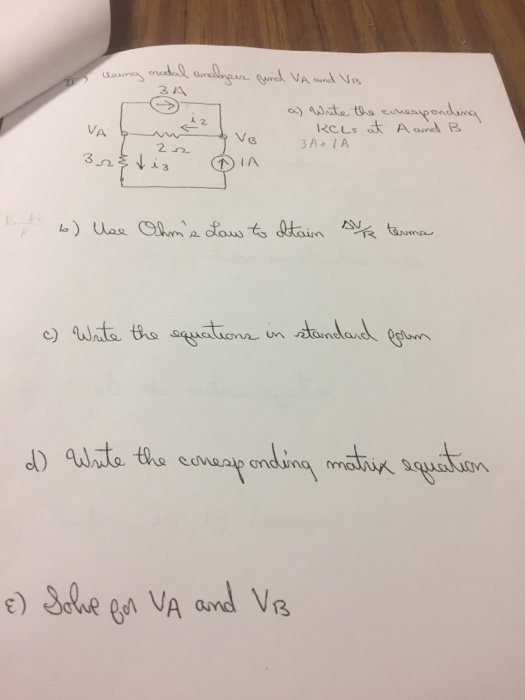 Using nodal analysis find VA and VB
3A
a) Write the corresponding
i2
KCLs at A and B
VA
VB
3A+1A
2Ω
3Ω
i3
1A
b) Use Ohm's Law to obtain ΔV/R terms
c) Write the equations in standard form
d) Write the corresponding matrix equation
E) Solve for VA and VB